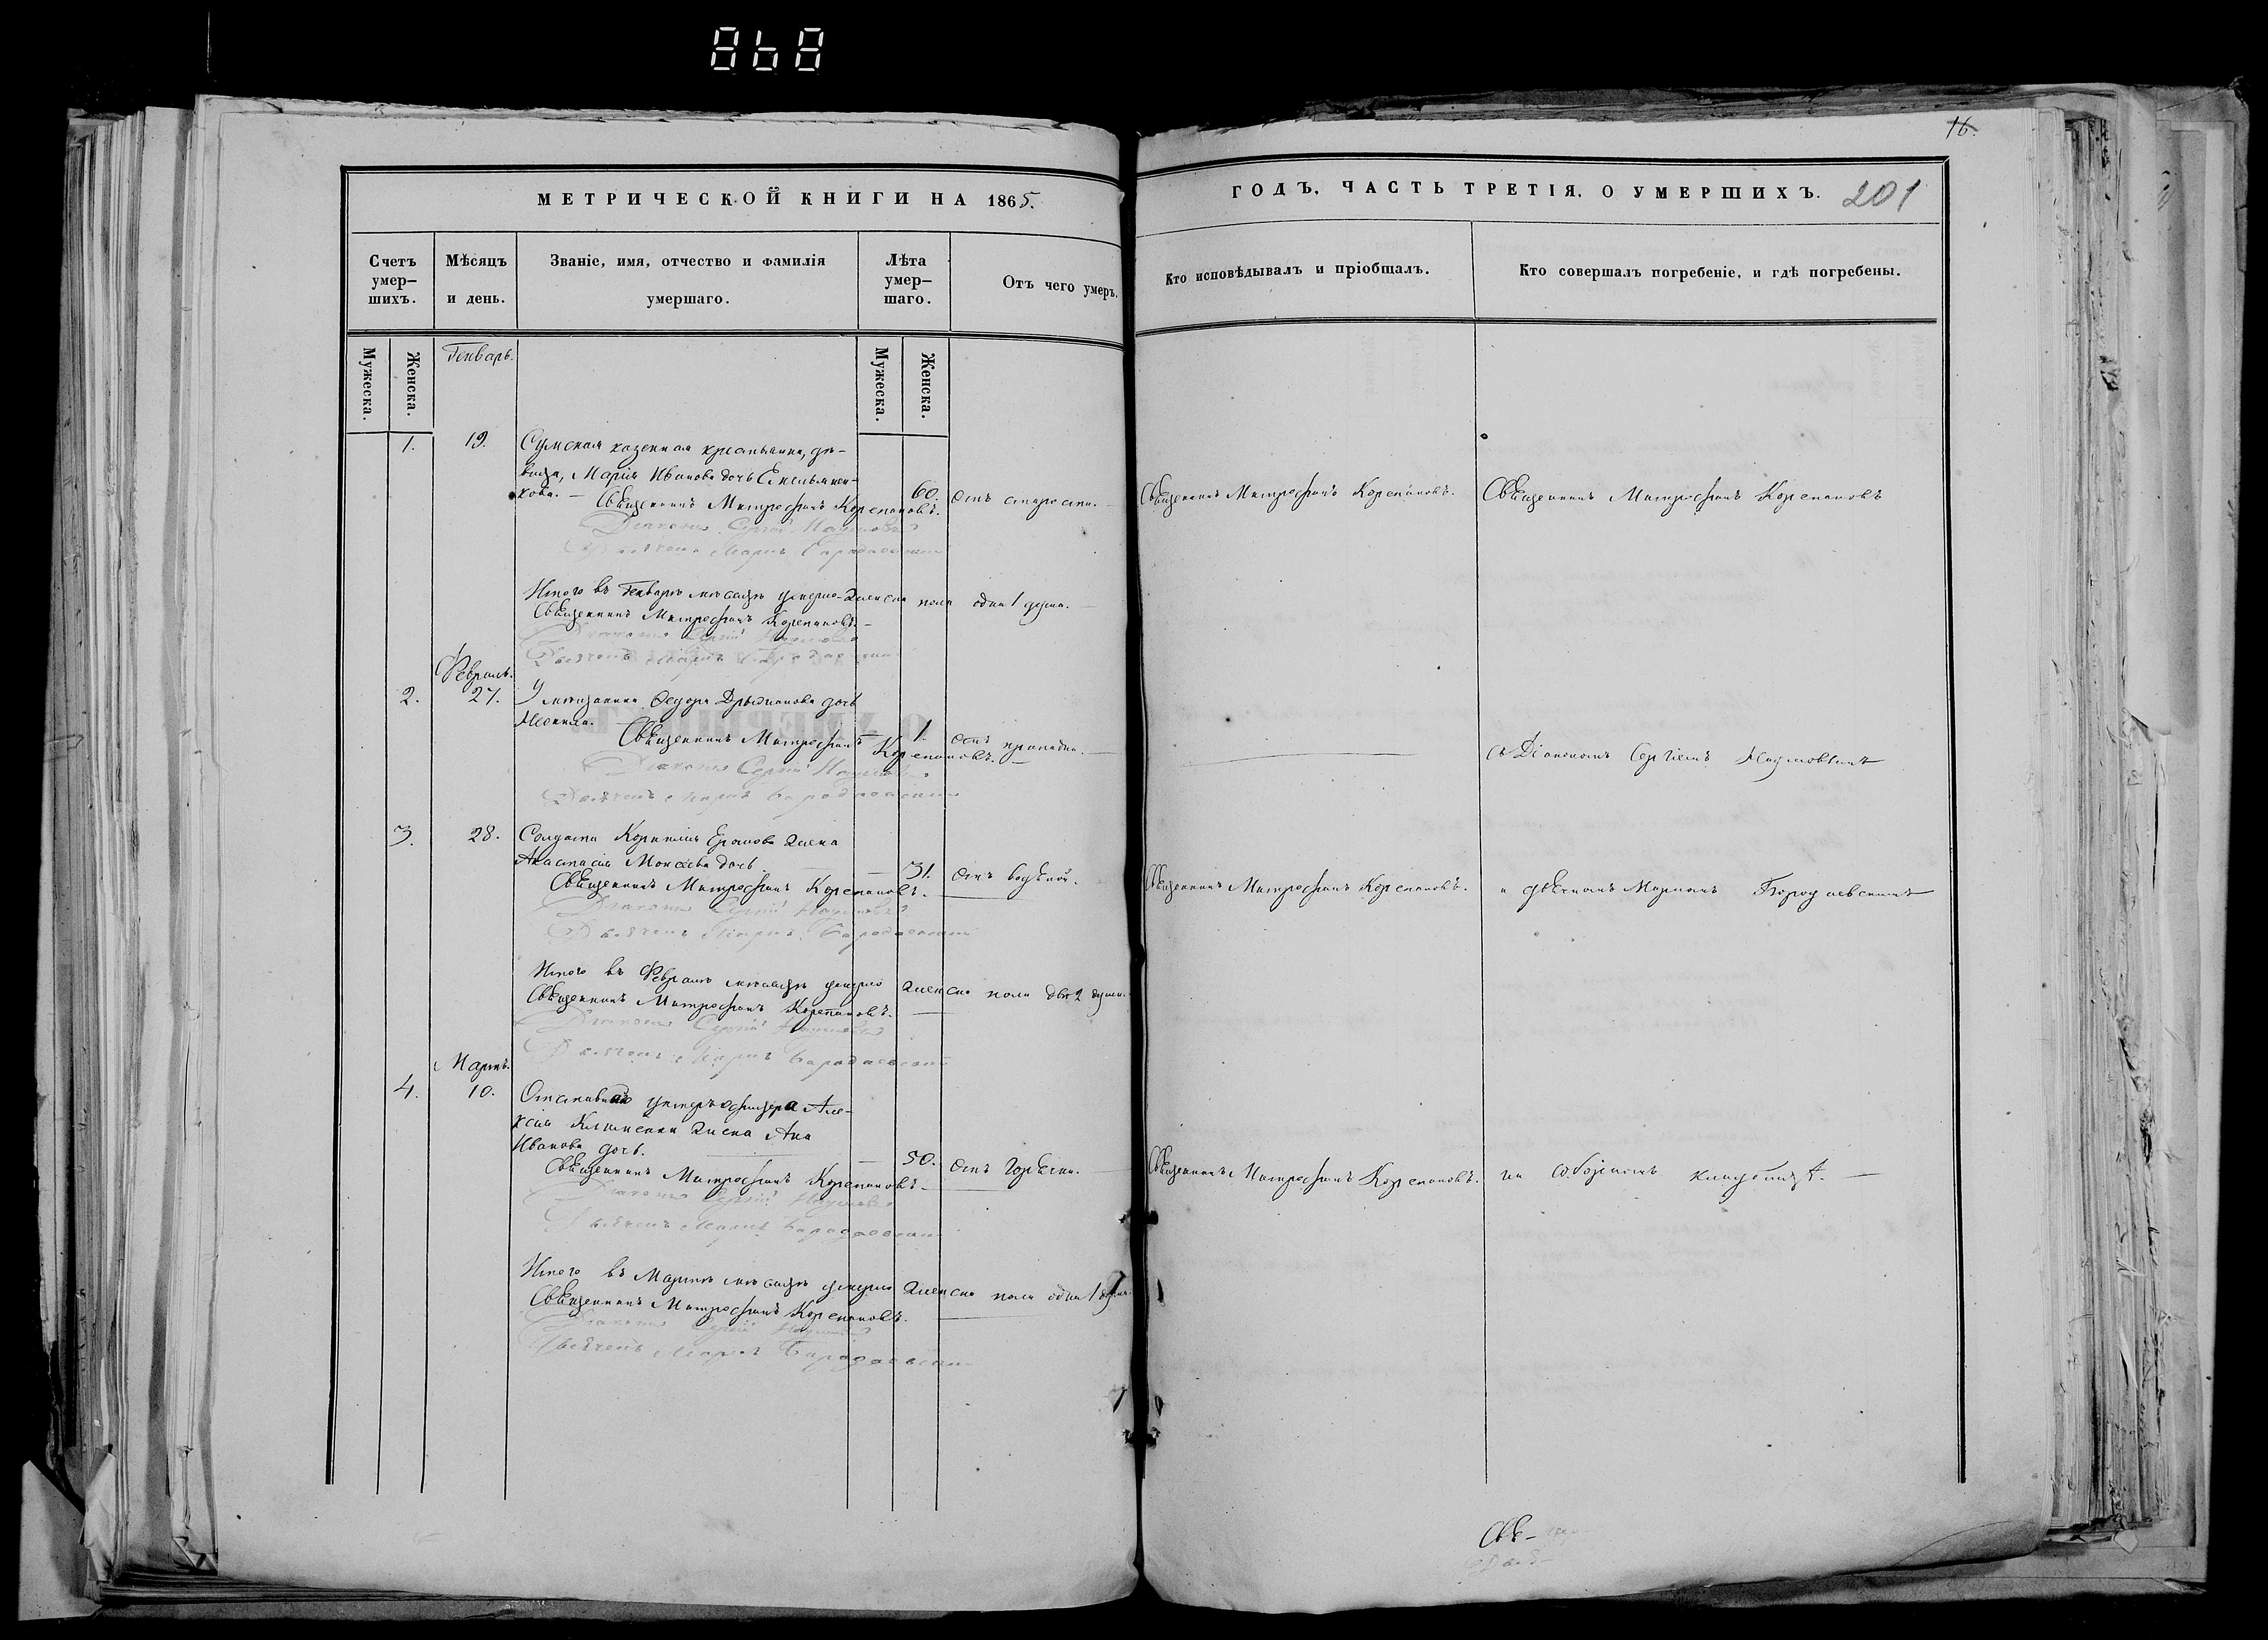 МЕТРИЧЕСКОЙ КНИГИ НА 1865.
Счетъ умер-шихъ.
Мѣсяцъ и день.
Званіе, имя, отчество и фамилія умершаго.
Лѣта умер-шаго.
Отъ чего умеръ.
Мужеска.
Женска.
Мужеска.
Женска.
Генварь.
1. 19. Сумская казенная крестьянка, дѣ-
вица, Марія Иванова дочь
кова. — 60. отъ старости.
Священникъ Митрофанъ Корепановъ.
Діаконъ Сергій Наумовъ
Дьячекъ Маркъ Бородаевскій
Итого въ Генварѣ мѣсяцѣ умерло женска пола одна 1 душа.
Священникъ Митрофанъ Корепановъ.
Діаконъ Сергій Наумовъ
Дьячекъ Маркъ Бородаевскій
Февраль.
2. 27. У мѣщанина Федора дочь
1. отъ
Священникъ Митрофанъ Корепановъ.
Діаконъ Сергій Наумовъ
Дьячекъ Маркъ Бородаевскій
3. 28. Солдата Корнилія жена
Анастасія Моисеева дочь 31. отъ водяной.
Священникъ Митрофанъ Корепановъ.
Діаконъ Сергій Наумовъ
Дьячекъ Маркъ Бородаевскій
Итого въ Февралѣ мѣсяцѣ умерло женска пола двѣ 2 души.
Священникъ Митрофанъ Корепановъ.
Діаконъ Сергій Наумовъ
Дьячекъ Маркъ Бородаевскій
Мартъ.
4. 10. Отставнаго унтеръ офицера Але-
ксія жена Анна
Иванова дочь. 50. отъ горячки.
Священникъ Митрофанъ Корепановъ.
Діаконъ Сергій Наумовъ
Дьячекъ Маркъ Бородаевскій
Итого въ Мартѣ мѣсяцѣ умерло женска пола одна 1 душа.
Священникъ Митрофанъ Корепановъ.
Діаконъ Сергій Наумовъ
Дьячекъ Маркъ Бородаевскій
16.
ГОДЪ, ЧАСТЬ ТРЕТІЯ, О УМЕРШИХЪ. 201
Кто исповѣдывалъ и пріобщалъ.
Кто совершалъ погребеніе, и гдѣ погребены.
Священникъ Митрофанъ Корепановъ. Священникъ Митрофанъ Корепановъ
съ Діакономъ Сергіемъ Наумовымъ
Священникъ Митрофанъ Корепановъ. и дьячкомъ Маркомъ Бородаевскимъ
Священникъ Митрофанъ Корепановъ. на кладбищѣ.
Свя-